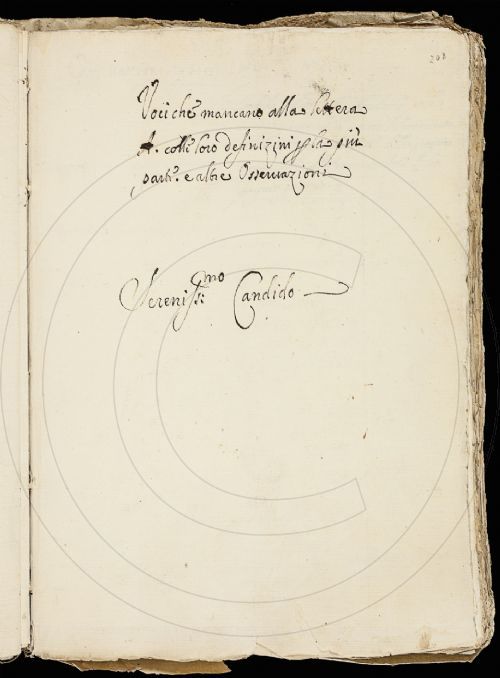 208
Voci che mancano alla lettera
A. colle loro definizini p la più
parte. e altre Osservazioni
Serenissimo Candido